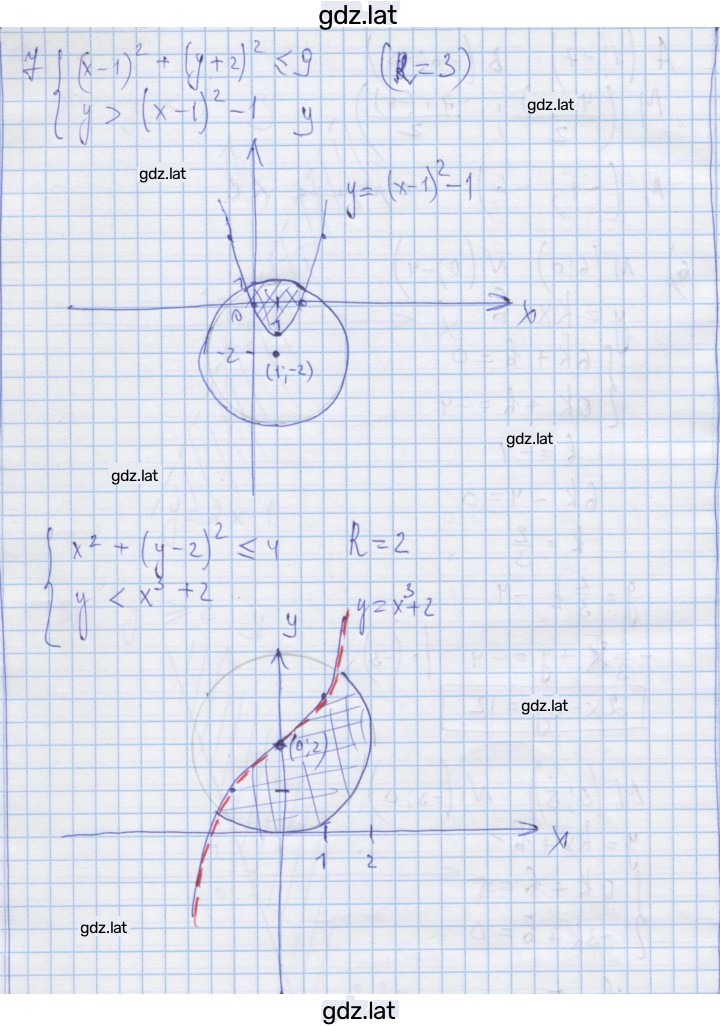 gdz.lat
7 { (x-1)² + (y+2)² ≤ 9 (R=3)
y > (x-1)² -1
gdz.lat
y
gdz.lat
y = (x-1)² -1
1
0
1
x
-2
(1;-2)
gdz.lat
gdz.lat
{ x² + (y-2)² ≤ 4 R=2
y < x³ +2
y = x³+2
y
gdz.lat
(0;2)
x
1 2
gdz.lat
gdz.lat